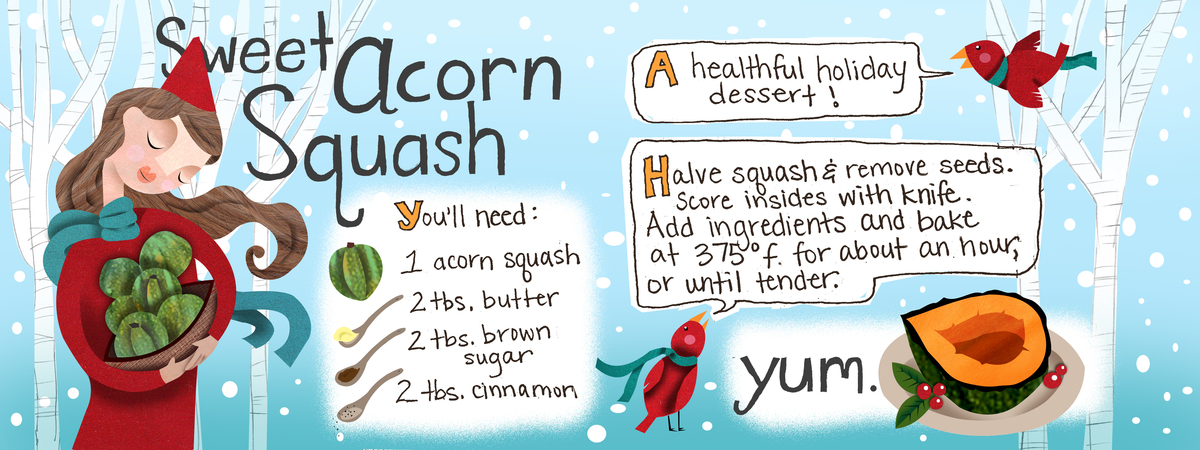 Sweet acorn
Squash
You'll need:
1 acorn squash
2 tbs. butter
2 tbs. brown
sugar
2 tbs. cinnamon
A healthful holiday
dessert!
Halve squash & remove seeds.
Score insides with knife.
Add ingredients and bake
at 375° f. for about an hour,
or until tender.
yum.